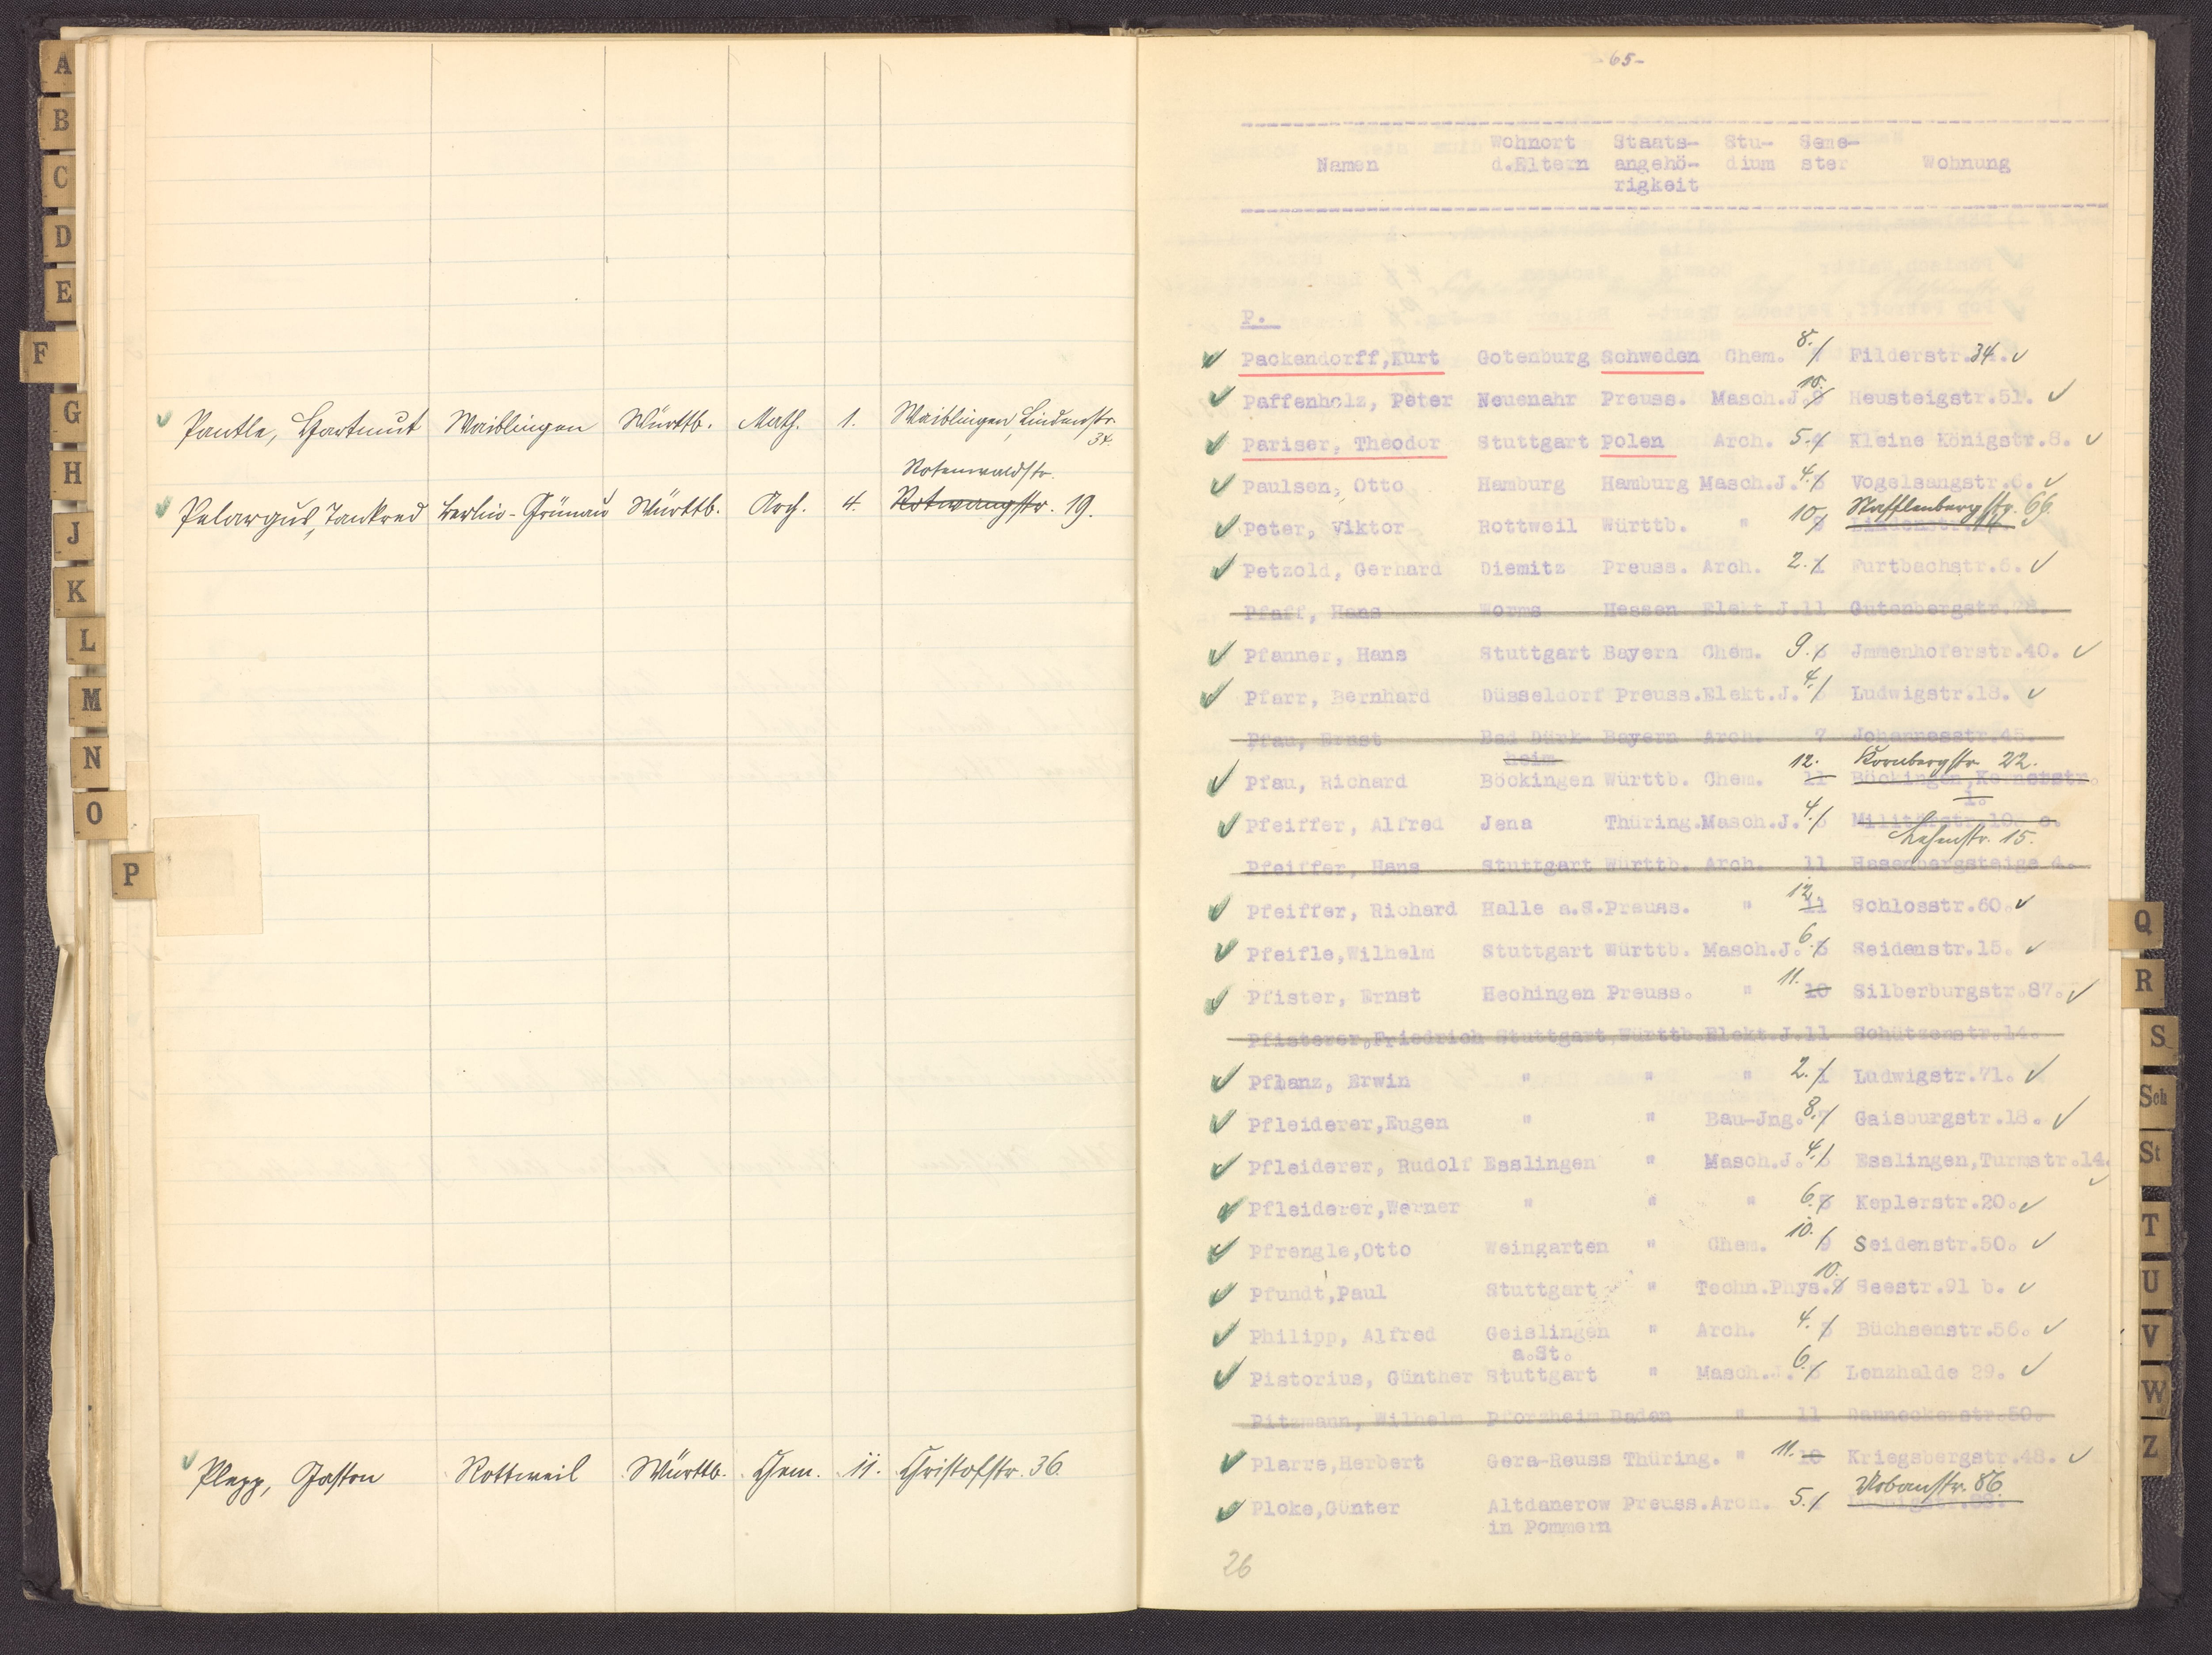 A
B
C
D
E
F
G
H
J
K
L
M
N
O
P
Pantle, Hartmut Waiblingen Württb. Math. 1. Waiblingen, Lindenstr.
34.
Rotenwaldstr.
Pelargus, Tankred Berlin-Grünau Württb. Arch. 4. Rotwangstr. 19.
Plapp, Gaston Rottweil Württb. Chem. 11. Christofstr. 36.
-65-
Wohnort Staats- Stu- Seme-
Namen d.Eltern angehö- dium ster Wohnung
rigkeit
P.
Packendorff,Kurt Gotenburg Schweden Chem. 8. Filderstr.34.
Paffenholz, Peter Neuenahr Preuss. Masch.J. 10. 9 Heusteigstr.51.
Pariser, Theodor Stuttgart Polen Arch. 5. 4 Kleine Königstr.8.
Paulsen, Otto Hamburg Hamburg Masch.J. 4. 3 Vogelsangstr.6.
Stafflenbergstr. 66.
Peter, Viktor Rottweil Württb. " 10. 9
Petzold, Gerhard Diemitz Preuss. Arch. 2. 1 Furtbachstr.6.
Pfaff, Hans Worms Hessen Elekt.J.11 Gutenbergstr.78.
Pfanner, Hans Stuttgart Bayern Chem. 9. 8 Jmmenhoferstr.40.
Pfarr, Bernhard Düsseldorf Preuss.Elekt.J. 4. 3 Ludwigstr.18.
Pfau, Ernst Bad Dürk- Bayern Arch. 7 Johannesstr.45.
heim
12. Kornbergstr. 22.
Pfau, Richard Böckingen Württb. Chem. 11 Böckingen,Kernerstr.
1.
Pfeiffer, Alfred Jena Thüring.Masch.J. 4. 3 Militärstr.10. c.
Lehenstr. 15.
Pfeiffer, Hans Stuttgart Württb. Arch. 11 Hasenbergsteige 4.
Pfeiffer, Richard Halle a.S.Preuss. " 12. 11 Schlosstr.60.
Pfeifle,Wilhelm Stuttgart Württb. Masch.J. 6. 5 Seidenstr.15.
Pfister, Ernst Hechingen Preuss. " 11. 10 Silberburgstr.87.
Pfisterer,Friedrich Stuttgart,Württb.Elekt.J.11 Schützenstr.14.
Pflanz, Erwin " " " 2. 1 Ludwigstr.71.
Pfleiderer,Eugen " " Bau-Jng. 8. 7 Gaisburgstr.18.
Pfleiderer, Rudolf Esslingen " Masch.J. 4. 3 Esslingen,Turmstr.14.
Pfleiderer,Werner " " " 6. 5 Keplerstr.20.
Pfrengle,Otto Weingarten " Chem. 10. 9 Seidenstr.50.
Pfundt,Paul Stuttgart " Techn.Phys. 10. 9 Seestr.91 b.
Philipp, Alfred Geislingen " Arch. 4. 3 Büchsenstr.56.
a.St.
Pistorius, Günther Stuttgart " Masch.J. 6. 5 Lenzhalde 29.
Pitzmann, Wilhelm Pforzheim Baden " 11 Danneckerstr.50.
Plarre,Herbert Gera-Reuss Thüring. " 11. 10 Kriegsbergstr.48.
Urbanstr. 86.
Ploke,Günter Altdanerow Preuss.Arch. 5.
in Pommern
26
Q
R
S
Sch
St
T
U
V
W
Z